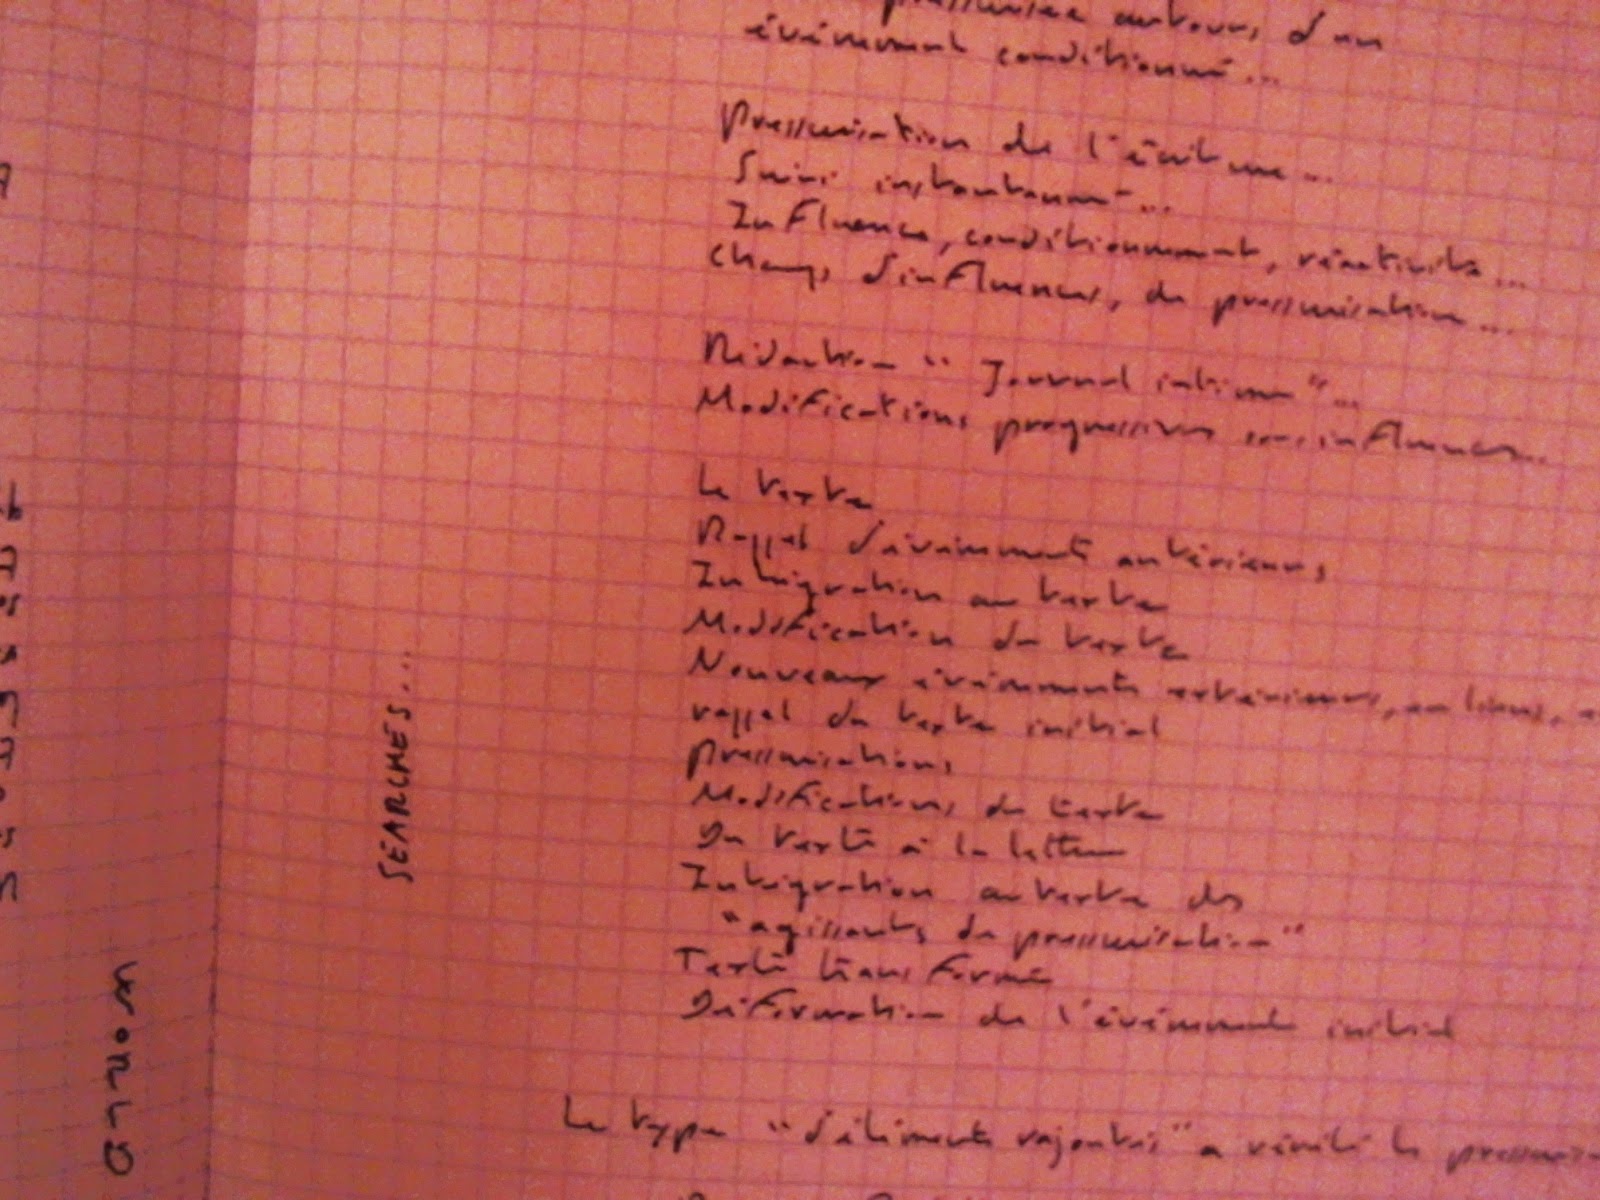 autours d'un
événement conditionné...
Pressurisation de l'écriture...
Suivi instantanné...
Influence, conditionnement, réactivité...
Champs d'influences, de pressurisation...
Rédaction "Journal intime"...
Modifications progressives sous influences...
Le texte
Rappel d'événements antérieurs
Intégration au texte
Modification du texte
Nouveaux événements extérieurs, en liens,
rappel du texte initial
Pressurisations
Modifications du texte
Du texte à la lettre
Intégration au texte des
"agissants de pressurisation"
Texte transformé
Déformation de l'événement initial
Le type "d'éléments rajoutés" a
SEARCHES...